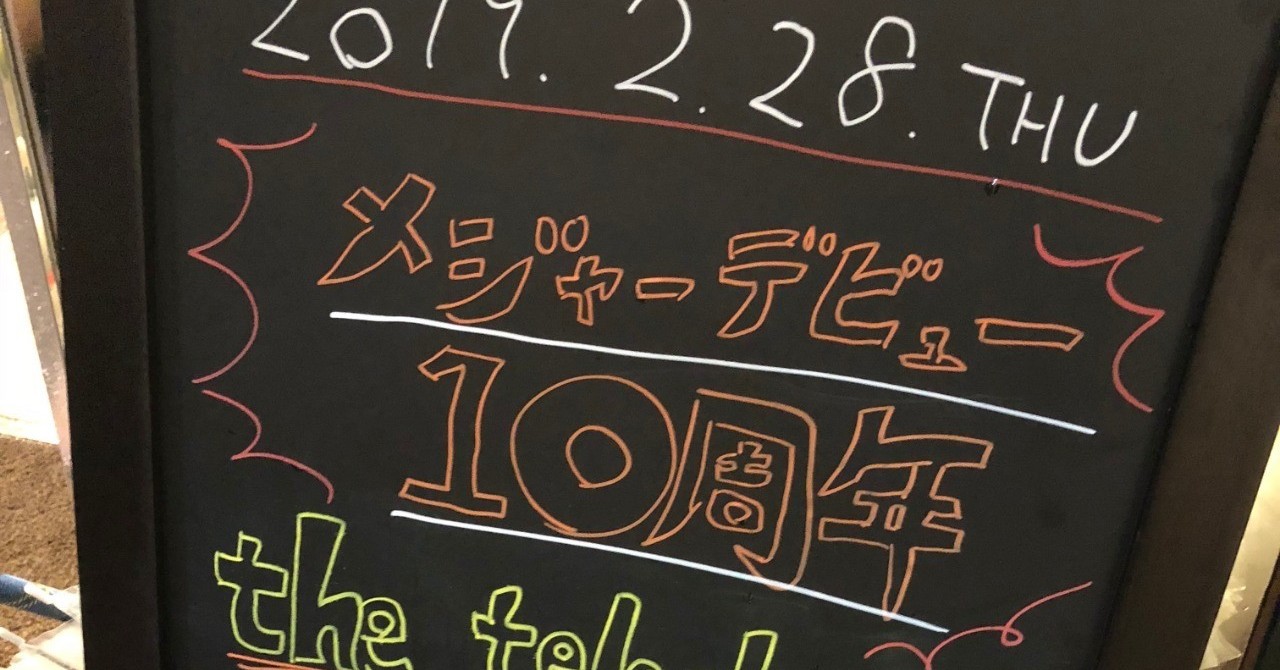 2019. 2. 28. THU
メジャーデビュー
10周年
the